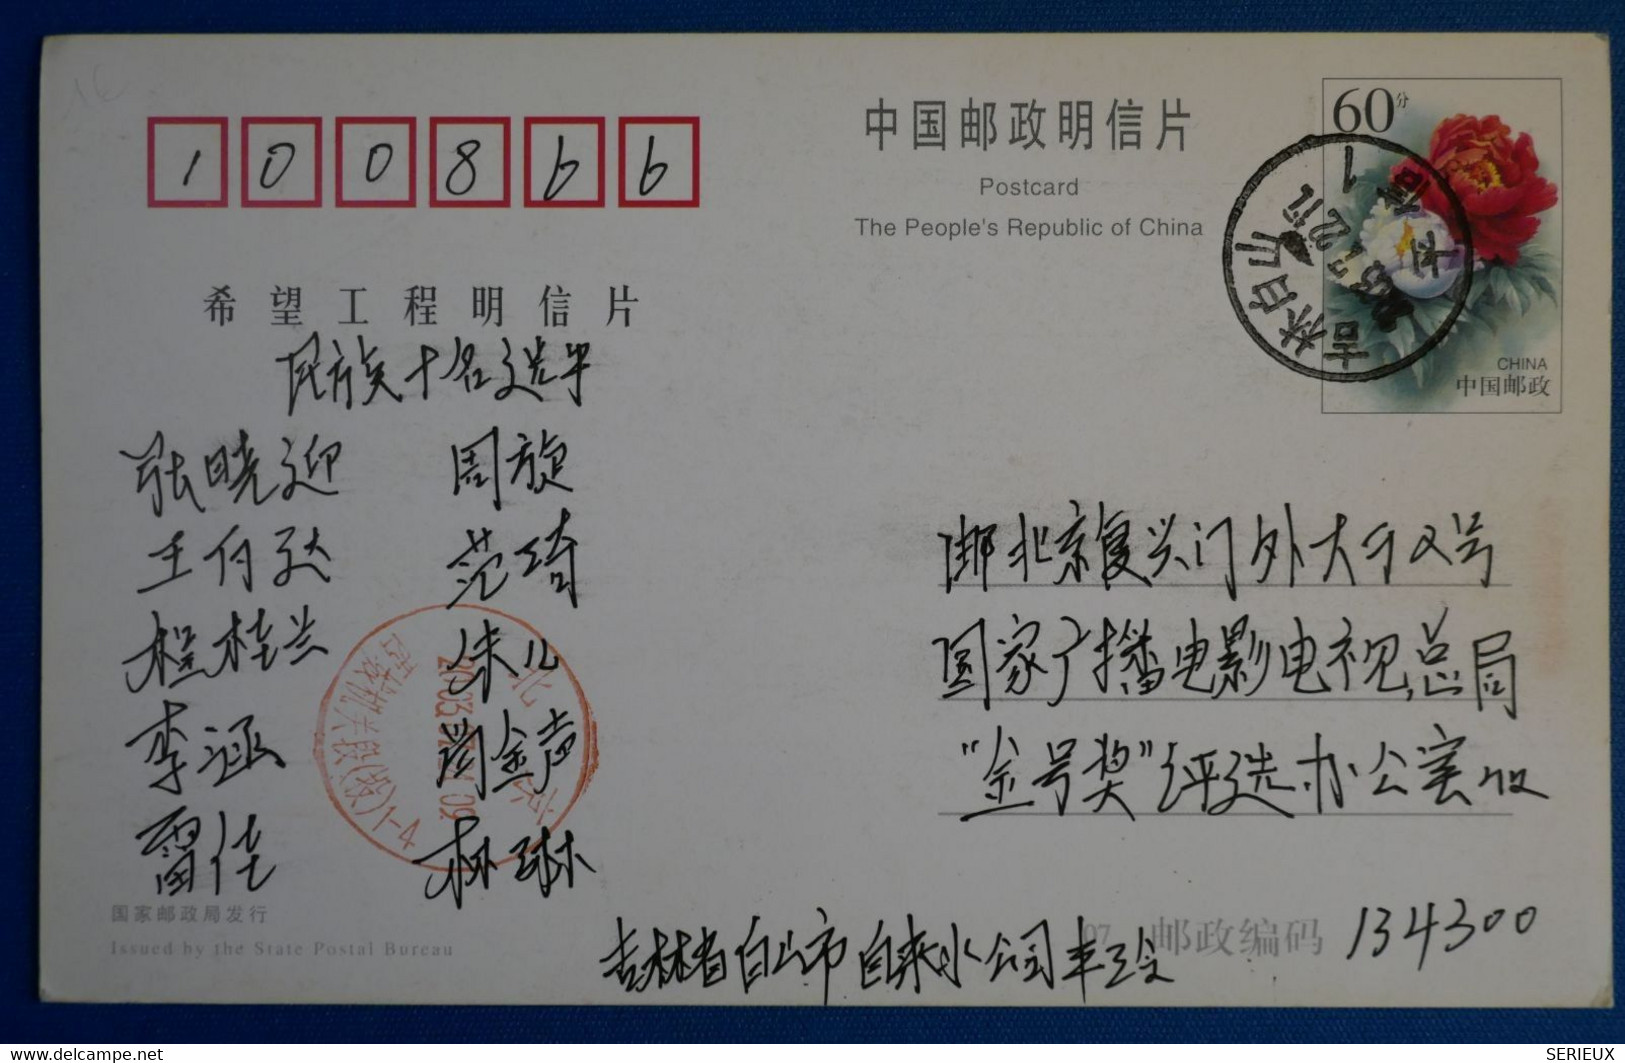 100866
中国邮政明信片
Postcard
The People's Republic of China
60分
CHINA
中国邮政
希望工程明信片
民族十名选手
张晓迎 周旋
王付达 范琦
程桂兰 朱儿
李涵 闫金声
雷佳 林琳
邮北京复兴门外大于2号
国家广播电影电视总局
"金号奖"评选办公室收
北京
国家邮政局发行
Issued by the State Postal Bureau
吉林省白山市自来水公司
邮政编码 134300
www.delcampe.net
SERIEUX